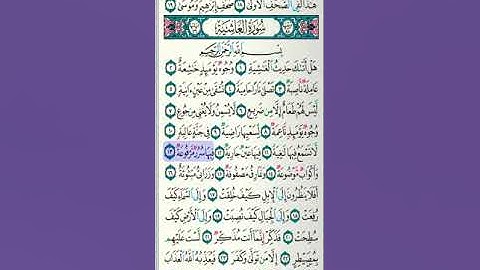 هَٰذَا لَفِي الصُّحُفِ الْأُولَىٰ ١٨ صُحُفِ إِبْرَاهِيمَ وَمُوسَىٰ ١٩
سُورَةُ الْغَاشِيَةِ
بِسْمِ اللَّهِ الرَّحْمَٰنِ الرَّحِيمِ
هَلْ أَتَاكَ حَدِيثُ الْغَاشِيَةِ ١ وُجُوهٌ يَوْمَئِذٍ خَاشِعَةٌ ٢
عَامِلَةٌ نَاصِبَةٌ ٣ تَصْلَىٰ نَارًا حَامِيَةً ٤ تُسْقَىٰ مِنْ عَيْنٍ آنِيَةٍ ٥
لَيْسَ لَهُمْ طَعَامٌ إِلَّا مِنْ ضَرِيعٍ ٦ لَا يُسْمِنُ وَلَا يُغْنِي مِنْ جُوعٍ ٧
وُجُوهٌ يَوْمَئِذٍ نَاعِمَةٌ ٨ لِسَعْيِهَا رَاضِيَةٌ ٩ فِي جَنَّةٍ عَالِيَةٍ ١٠
لَا تَسْمَعُ فِيهَا لَاغِيَةً ١١ فِيهَا عَيْنٌ جَارِيَةٌ ١٢ فِيهَا سُرُرٌ مَرْفُوعَةٌ ١٣
وَأَكْوَابٌ مَوْضُوعَةٌ ١٤ وَنَمَارِقُ مَصْفُوفَةٌ ١٥ وَزَرَابِيُّ مَبْثُوثَةٌ ١٦
أَفَلَا يَنْظُرُونَ إِلَى الْإِبِلِ كَيْفَ خُلِقَتْ ١٧ وَإِلَى السَّمَاءِ كَيْفَ
رُفِعَتْ ١٨ وَإِلَى الْجِبَالِ كَيْفَ نُصِبَتْ ١٩ وَإِلَى الْأَرْضِ كَيْفَ
سُطِحَتْ ٢٠ فَذَكِّرْ إِنَّمَا أَنْتَ مُذَكِّرٌ ٢١ لَسْتَ عَلَيْهِمْ
بِمُصَيْطِرٍ ٢٢ إِلَّا مَنْ تَوَلَّىٰ وَكَفَرَ ٢٣ فَيُعَذِّبُهُ اللَّهُ الْعَذَابَ